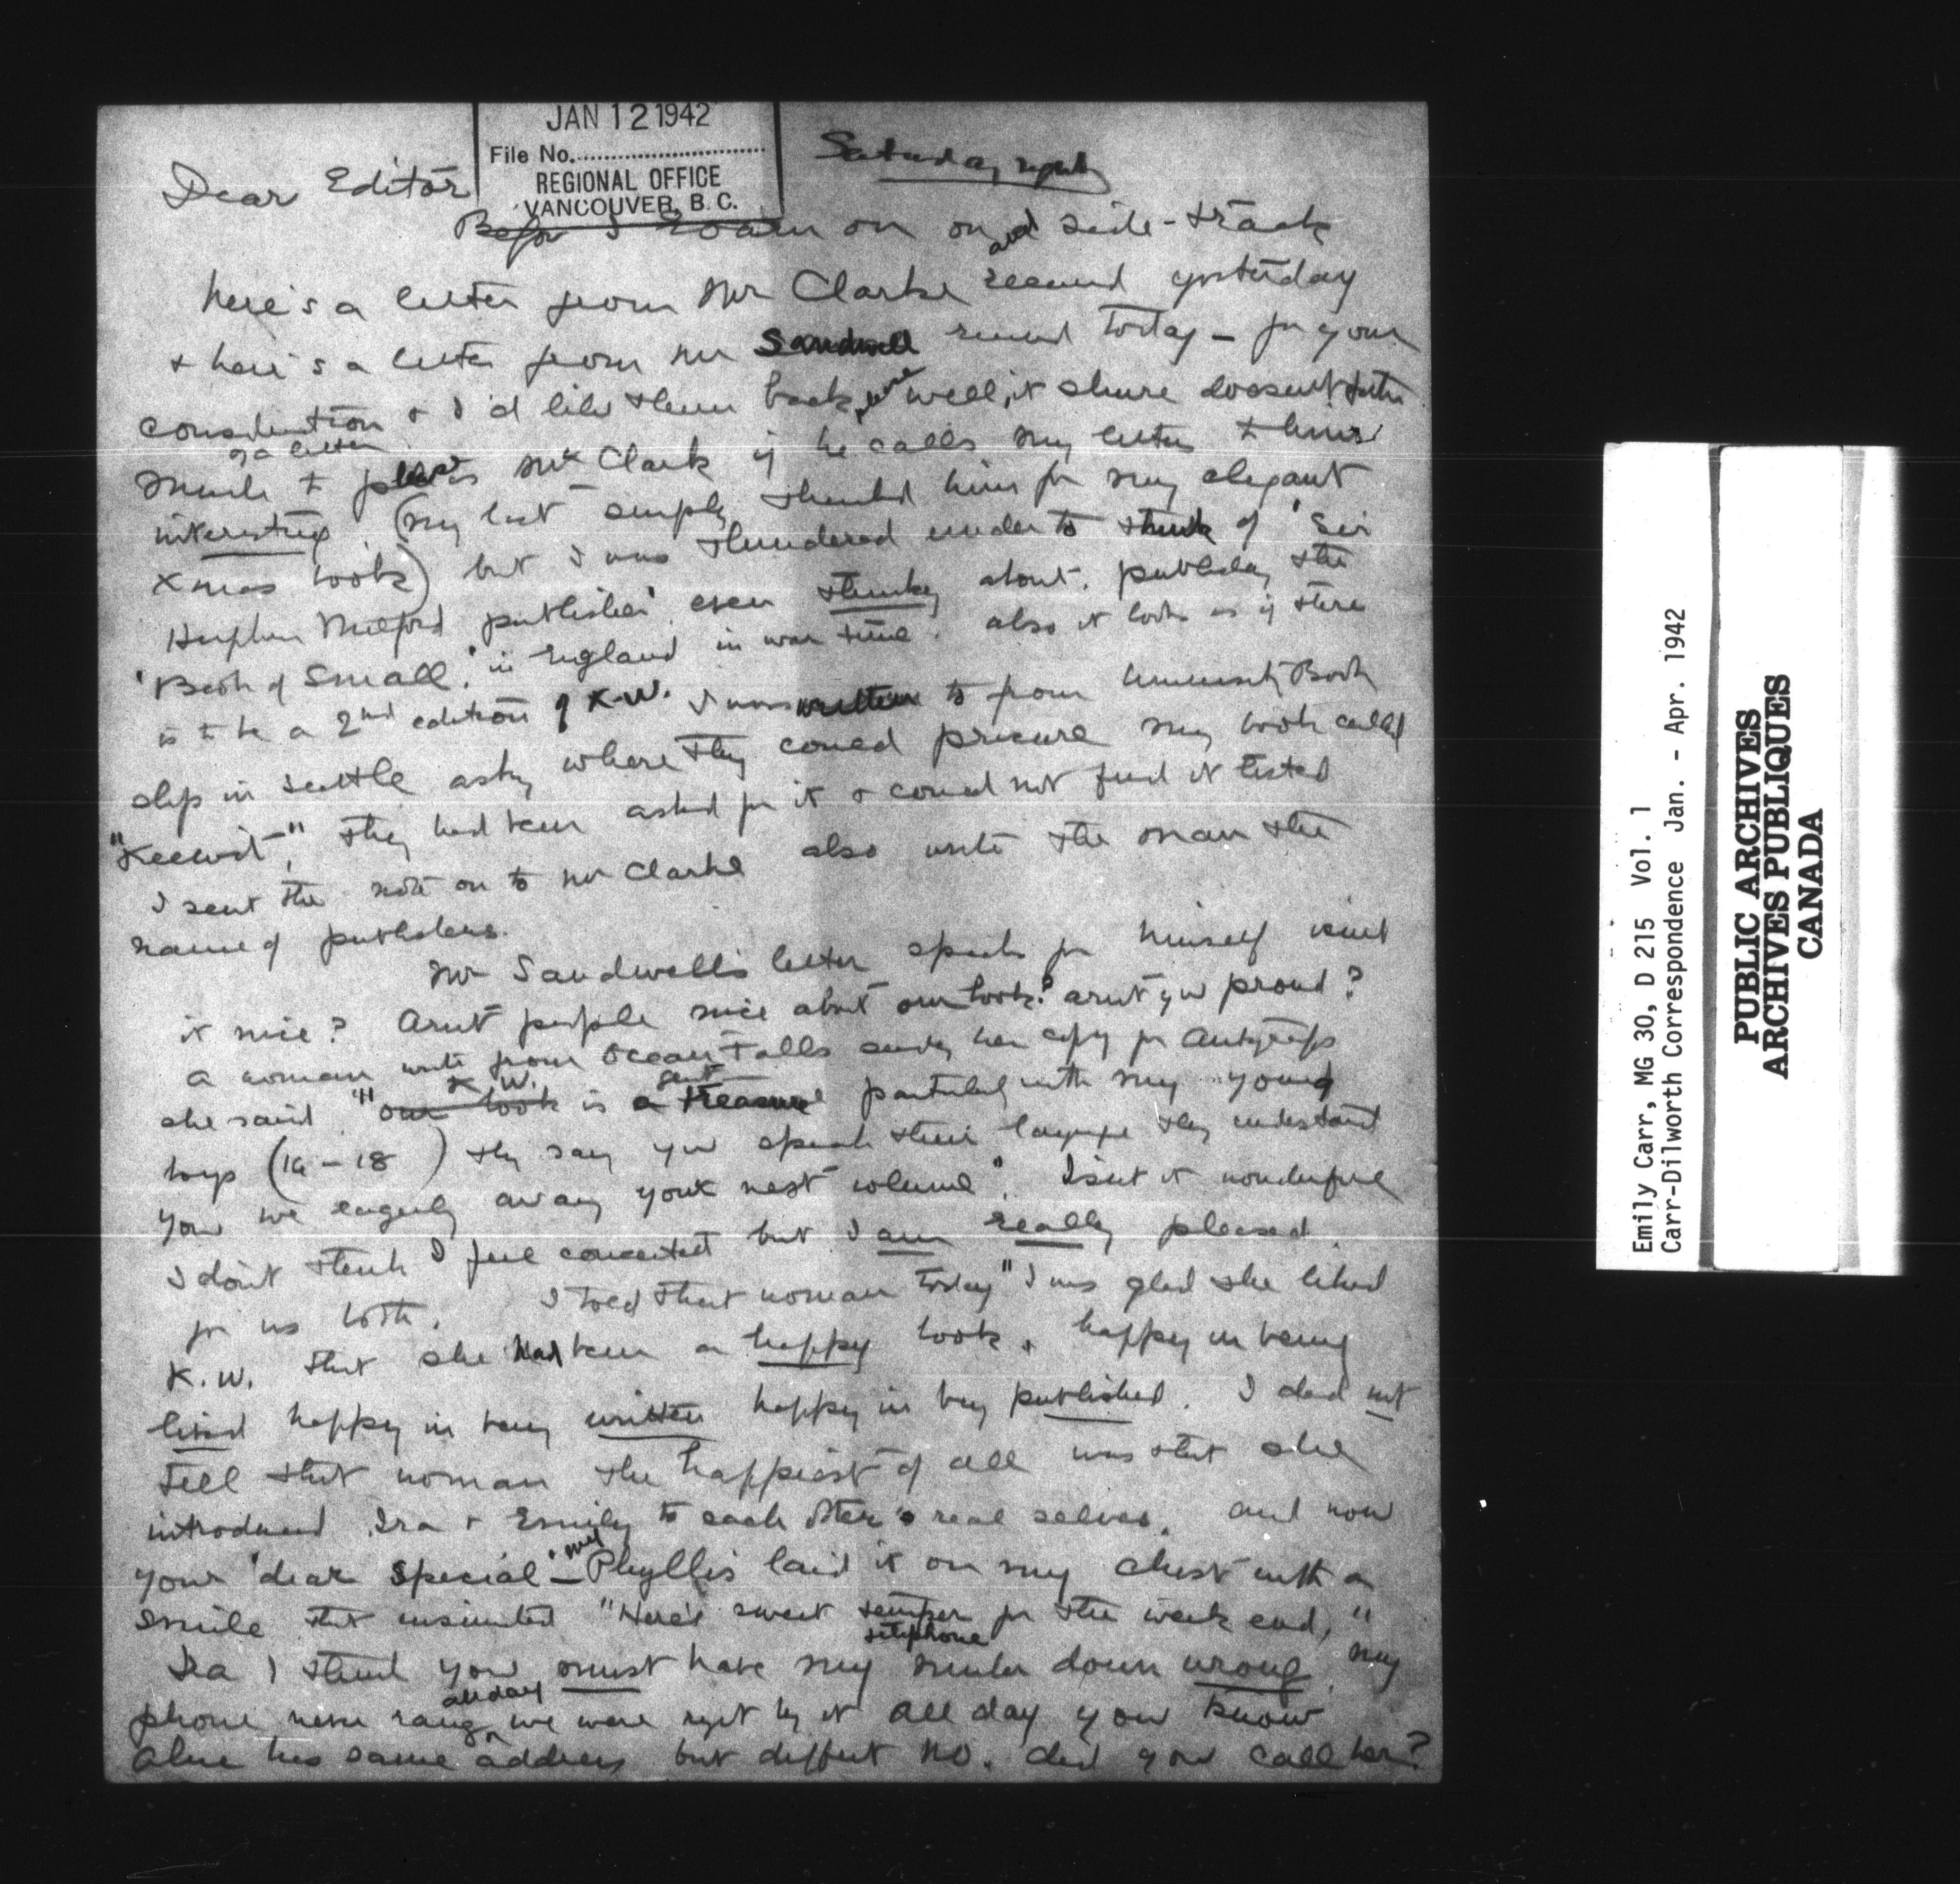 JAN 12 1942
File No.
REGIONAL OFFICE
VANCOUVER, B.C.
Saturday night
Dear Editor
Before I roam on on and side-track
here's a letter from Mr Clarke received yesterday
& here's a letter from Mr Sandwell received today – for your
consideration & I'd like them back, well, it shure doesent take
much of a letter to please Mr Clark if he calls my letters to him
interesting. (my last simply thanked him for my elegant
Xmas book) but I was thundered under to think of 'Sir
Humphrey Milford publisher' even thinking about publishing the
'Book of Small,' in England in war time. also it looks as if there
is to be a 2nd edition of K.W. I was written to from University Book
shop in Seattle asking where they could procure my book called
"Keewit", they had been asked for it & could not find it listed
I sent the note on to Mr Clarke also write the man the
name of publishers.
Mr Sandwell's letter speaks for himself isint
it nice? Arn't people nice about our book? arn't you proud?
a woman write from Ocean Falls sending her copy for Autographs
she said "our book K.W. is a treasure particularly with my young
boys (16-18) they say you speak their language they understand
you we eagerly await your next volume". Isint it wonderful
I don't think I feel conceited but I am really pleased
for us both. I told that woman today "I was glad she liked
K.W. that she had been a happy book, happy in being
lived happy in being written happy in being published. I did not
tell that woman the happiest of all was that she
introduced Ira & Emily to each other's real selves. and now
your 'dear Special' – Phyllis laid it on my chest with a
smile that insinuated "Here's sweet temper for the week end,"
Ira I think you must have my telephone number down wrong my
phone never rang all day, we were right by it all day you know
Alice has same address but diffent no. did you call her?
Emily Carr, MG 30, D 215 Vol. 1
Carr-Dilworth Correspondence Jan. - Apr. 1942
PUBLIC ARCHIVES
ARCHIVES PUBLIQUES
CANADA